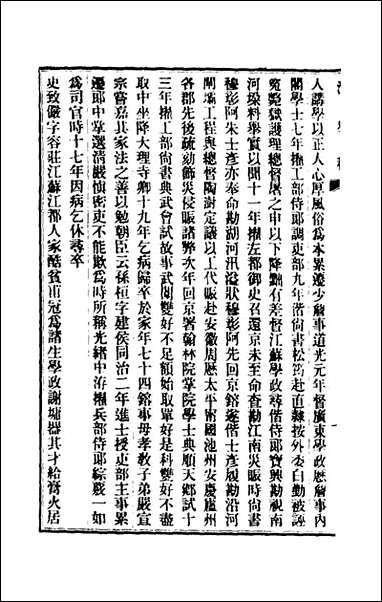 人講學以正人心厚風俗爲本累遷少詹事道光元年督廣東學政歷詹事內
閣學士七年擢工部侍郎調吏部九年偕尙書松筠赴直隸按外委白勤被誣
冤斃獄護理總督屠之申以下降黜有差督江蘇學政尋偕侍郎寶興勘視南
河垛料舉實以聞十一年擢左都御史召還京未至命查勘江南災賑時尙書
穆彰阿朱士彥亦奉命勘湖河汛溢狀穆彰阿先回京鎔遂偕士彥履勘沿河
閘壩工程與總督陶澍定議以工代賑赴安徽周歷太平甯國池州安慶廬州
各郡先後疏劾飾災侵賑諸弊次年回京署翰林院掌院學士典順天鄉試十
三年擢工部尙書典武會試故事武闈雙好不足額始取單好是科雙好不盡
取中坐降大理寺卿十九年乞病歸卒於家年七十四鎔事母孝教子弟嚴宣
宗嘗嘉其家法之善以勉朝臣云孫桓字建侯同治二年進士授吏部主事累
遷郎中掌選清嚴愼密吏不能欺爲時所稱光緒中洊擢兵部侍郎綜覈一如
爲司官時十七年因病乞休尋卒
史致儼字容莊江蘇江都人家酷貧甫冠爲諸生學政謝墉擇其才給膏火居